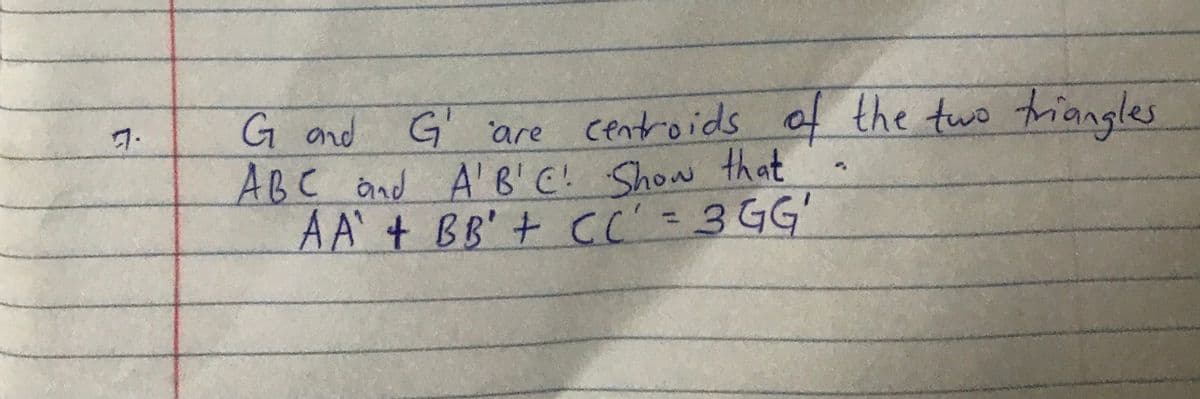 7. G and G' are centroids of the two triangles
ABC and A'B'C'. Show that
AA' + BB' + CC' = 3GG'